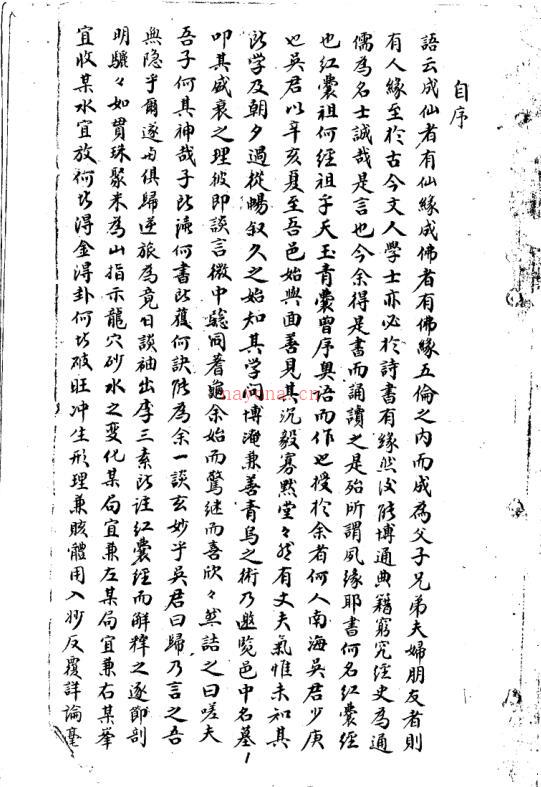 自序
語云成仙者有仙緣成佛者有佛緣五倫之内而成為父子兄弟夫婦朋友者則
有人緣至於古今文人學士亦必於詩書有緣然後能博通典籍窮究經史為通
儒為名士誠哉是言也今余得是書而誦讀之是殆所謂夙緣耶書何名紅囊經
也紅囊祖何經祖乎天玉青囊曾序奧語而作也授於余者何人南海吳君少庚
也吳君以辛亥夏至吾邑始與面善見其沉毅寡默堂々然有丈夫氣惟未知其
所学及朝夕過從暢叙久之始知其学問博淹兼善青烏之術乃遊覧邑中名墓
叩其盛衰之理彼即談言微中驗同蓍龜余始而驚継而喜欣々然詰之曰嗟夫
吾子何其神哉子所讀何書所獲何訣能為余一談玄妙乎吳君曰歸乃言之吾
無隐乎爾遂与俱歸逆旅為竟日談袖出李三素所註紅囊經而解釋之逐節剖
明驪々如貫珠聚米為山指示龍穴砂水之变化某局宜兼左某局宜兼右某峯
宜收某水宜放何所得金得卦何所破旺冲生形理兼賅體用入妙反覆詳論毫
1
nayona.cn